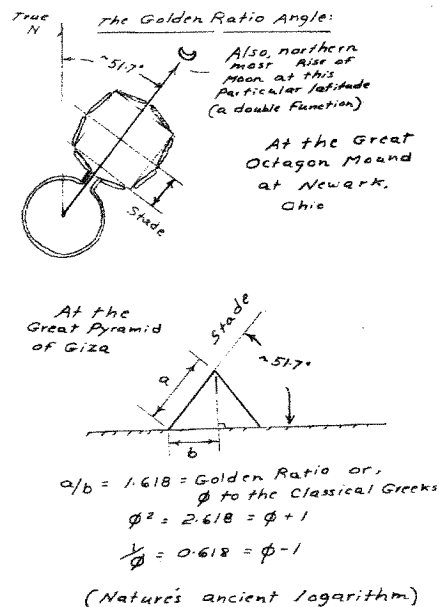 The Golden Ratio Angle:
True
N
~51.7°
Also, northern
most Rise of
Moon at this
Particular latitude
(a double Function)
At the Great
Octagon Mound
at Newark,
Ohio
Stade
At the
Great Pyramid
of Giza
Stade
~51.7°
a
b
a/b = 1.618 = Golden Ratio or,
ø to the Classical Greeks
ø² = 2.618 = ø + 1
1/ø = 0.618 = ø - 1
(Nature's ancient logarithm)